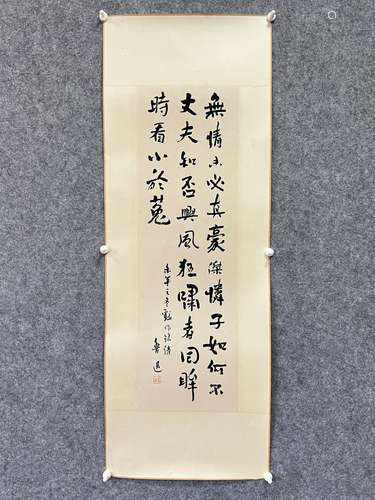 無情未必真豪傑憐子如何不
丈夫知否興風狂嘯者回眸
時看小於菟
未年之冬戲作錄請
魯迅